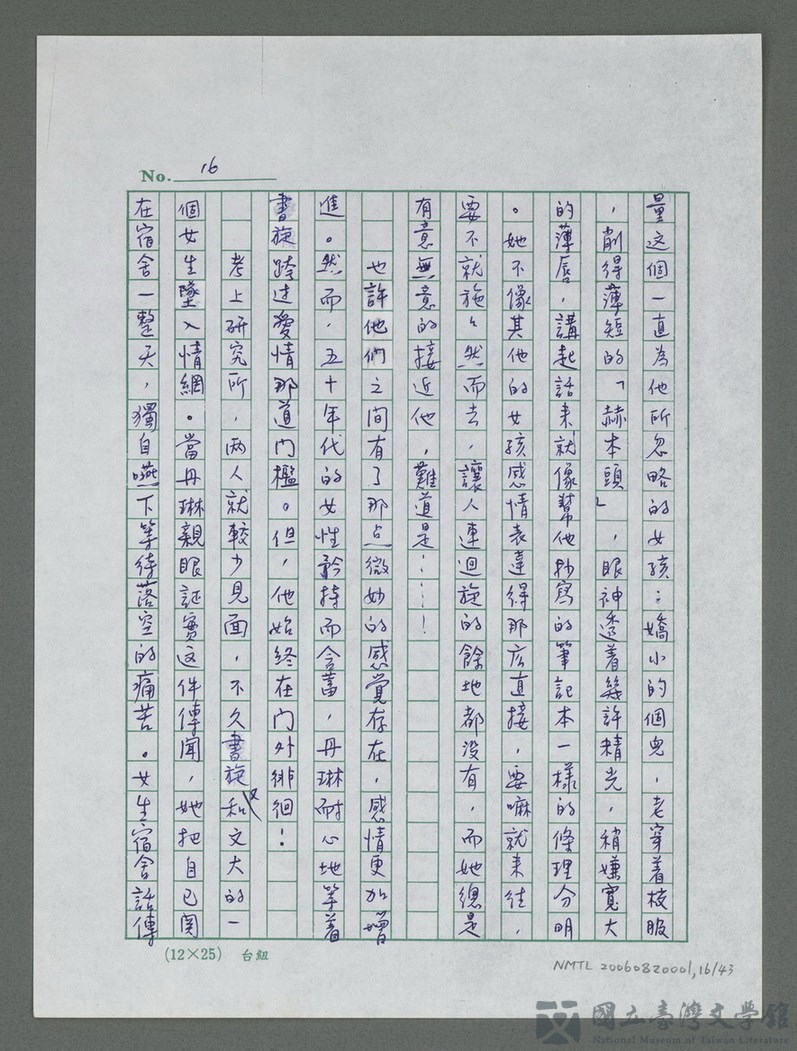 No. 16
量這個一直為他所忽略的女孩：嬌小的個兒，老穿着校服
，削得薄短的「赫本頭」，眼神透着幾許精光，稍嫌寬大
的薄唇，講起話来就像幫他抄寫的筆記本一樣的條理分明
。她不像其他的女孩感情表達得那広直接，要嘛就来往，
要不就施々然而去，讓人連迴旋的餘地都没有，而她總是
有意無意的接近他，難道是……！
也許他們之间有了那点微妙的感覚存在，感情更加增
進。然而，五十年代的女性矜持而含蓄，丹琳耐心地等着
書旋跨过愛情那道门檻。但，他始终在门外徘徊！
考上研究所，两人就較少見面，不久書旋又和文大的一
個女生墜入情網。當丹琳親眼証實这件傳聞，她把自己関
在宿舍一整天，獨自嚥下等待落空的痛苦。女生宿舍話傳
(12×25) 台紐
NMTL 20060820001,16/43
國立臺灣文學館
National Museum of Taiwan Literature